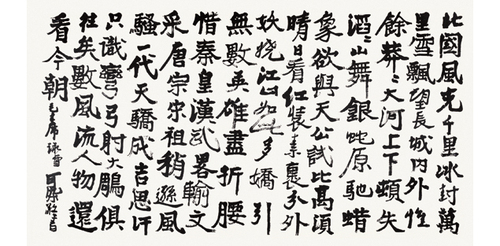 北國風光千里冰封萬
里雪飄望長城內外惟
餘莽〻大河上下頓失
滔〻山舞銀蛇原馳蜡
象欲與天公試比高須
晴日看紅裝素裹分外
妖嬈江山如此多嬌引
無數英雄盡折腰
惜秦皇漢武畧輸文
采唐宗宋祖稍遜風
騷一代天驕成吉思汗
只識彎弓射大鵰俱
往矣數風流人物還
看今朝 毛主席詠雪